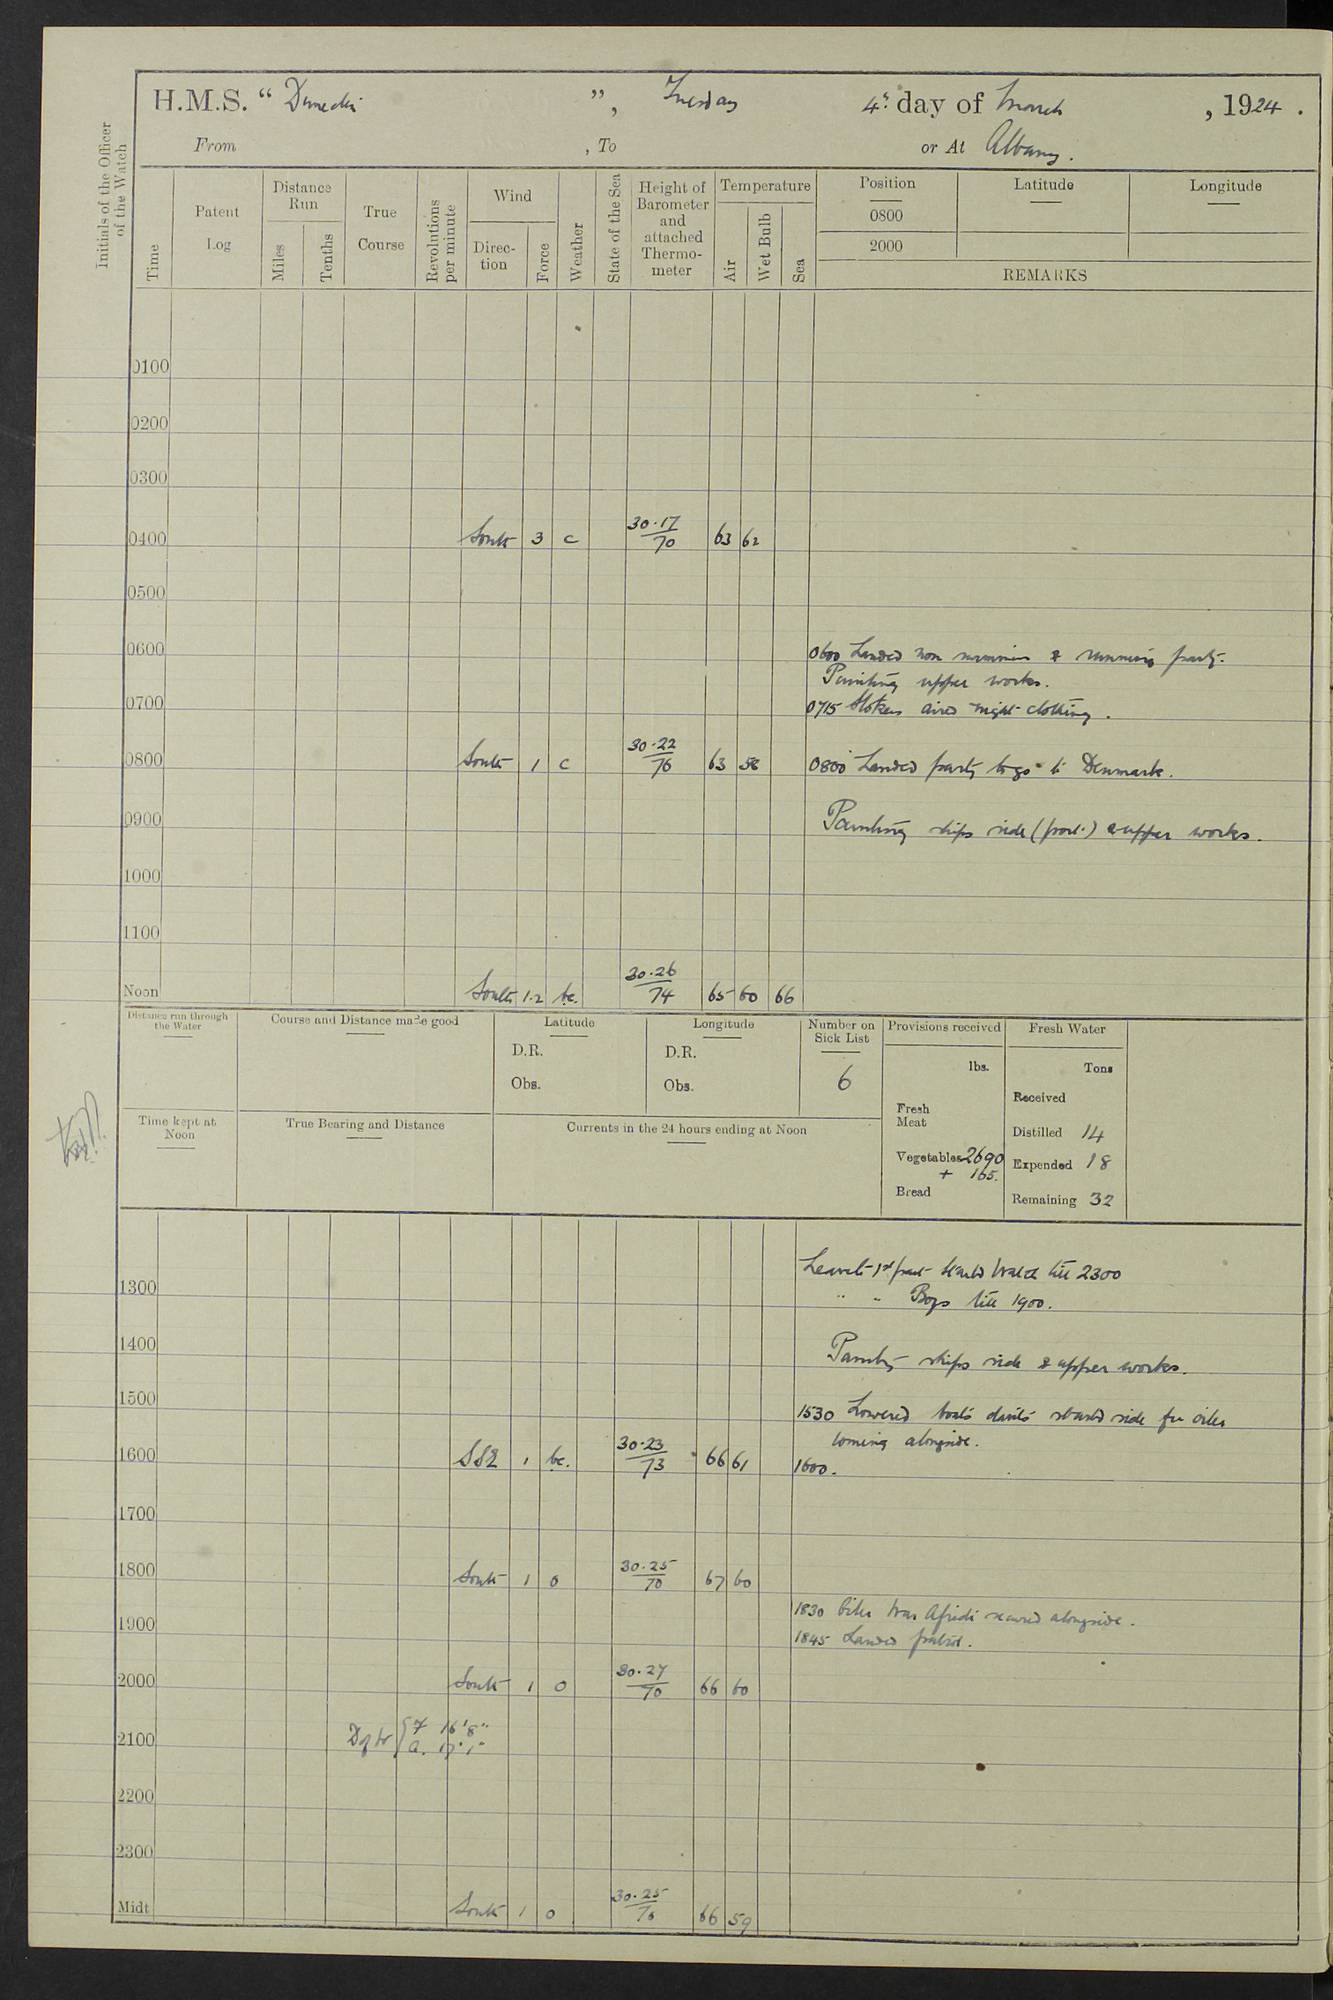 H.M.S. “ Dunedin ”, Tuesday 4th day of March , 1924 .
From , To or At Albany.
Initials of the Officer of the Watch
Time
Patent Log
Distance Run
Miles
Tenths
True Course
Revolutions per minute
Wind
Direc- tion
Force
Weather
State of the Sea
Height of Barometer and attached Thermo- meter
Temperature
Air
Wet Bulb
Sea
Position
0800
2000
Latitude
Longitude
REMARKS
0100
0200
0300
0400 South 3 c 30.17/70 63 62
0500
0600
0600 Landed non swimmers & running party.
Painting upper works.
0700
0715 Stokers aired night clothing.
0800 South 1 c 30.22/76 63 58
0800 Landed party to go to Denmark.
0900
Painting ships side (port.) & upper works.
1000
1100
Noon South 1.2 bc. 30.26/74 65 60 66
Distance run through the Water
Course and Distance made good
Latitude
D.R.
Obs.
Longitude
D.R.
Obs.
Number on Sick List
6
Provisions received
lbs.
Fresh Meat
Vegetables 2690
+ 165.
Bread
Fresh Water
Tons
Received
Distilled 14
Expended 18
Remaining 32
Time kept at Noon
True Bearing and Distance
Currents in the 24 hours ending at Noon
Leave to 1st part Starbd Watch till 2300
1300
" " Boys till 1900.
1400
Painting ships side & upper works.
1500
1530 Lowered boats davits starbd side for oiler
coming alongside.
1600 SSE 1 bc. 30.23/73 66 61
1600.
1700
1800 South 1 o 30.25/70 67 60
1830 Oiler War Afridi secured alongside.
1900
1845 Landed patrol.
2000 South 1 o 30.27/70 66 60
2100
F 16' 8"
A. 17' 1"
2200
2300
Midt South 1 o 30.25/70 66 59